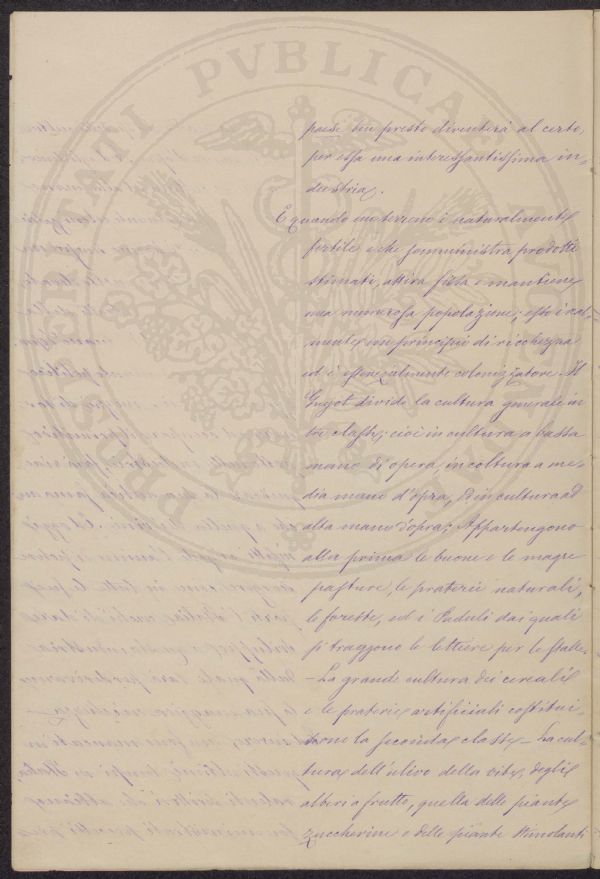 PROSPERITATI PVBLICAE A
paese ben presto diventerà al certo,
per essa una interessantissima in-
dustria.
E quando un terreno è naturalmente
fertile e che somministra prodotti
stimati, attira fissa e mantiene
una numerosa popolazione; esso è real-
mente un principio di ricchezza
ed è essenzialmente colonizzatore. Il
Guyot divide la cultura generale in
tre classi; cioè in cultura a bassa
mano d'opera, in coltura a me-
dia mano d'opra, ed in cultura ad
alta mano d'opra; Appartengono
alla prima le buone e le magre
pasture, le praterie naturali,
le foreste, ed i Paduli dai quali
si traggono le lettiere per le stalle.
- La grande cultura dei cereali
e le praterie artificiali costitui-
scono la seconda classe - La cul-
tura dell'ulivo della vite, degli
alberi a frutto, quella delle piante
zuccherine e delle piante stimolanti